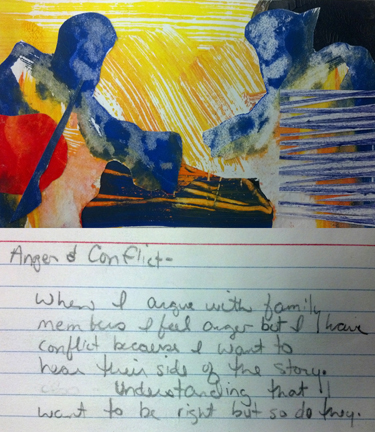 Anger & Conflict-
When I argue with family
members I feel anger but I have
conflict because I want to
hear their side of the story.
Understanding that I
want to be right but so do they.